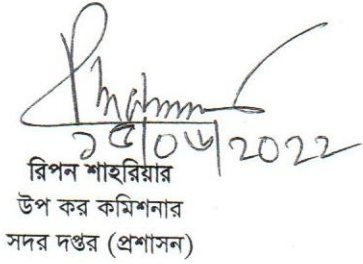 ১৫/০৬/২০২২
রিপন শাহরিয়ার
উপ কর কমিশনার
সদর দপ্তর (প্রশাসন)